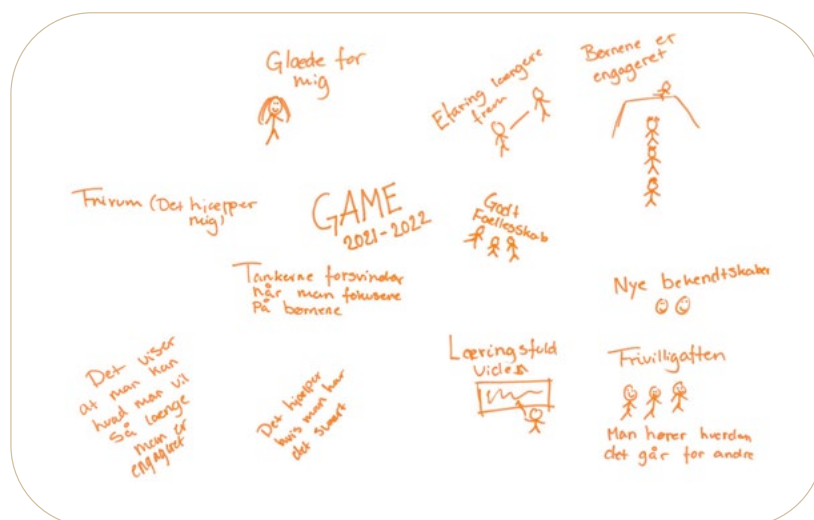 Glæde for
mig
Efaring længere
frem
Børnene er
engageret
Frirum (Det hjælper
mig)
GAME
2021-2022
Godt
Fællesskab
Tankerne forsvinder
når man fokusere
På børnene
Nye bekendtskaber
Det viser
at man kan
hvad man vil
Så længe
man er
engageret
Det hjælper
hvis man har
det svært
Læringsfuld
viden
Frivilligaften
Man hører hverdan
det går for andre